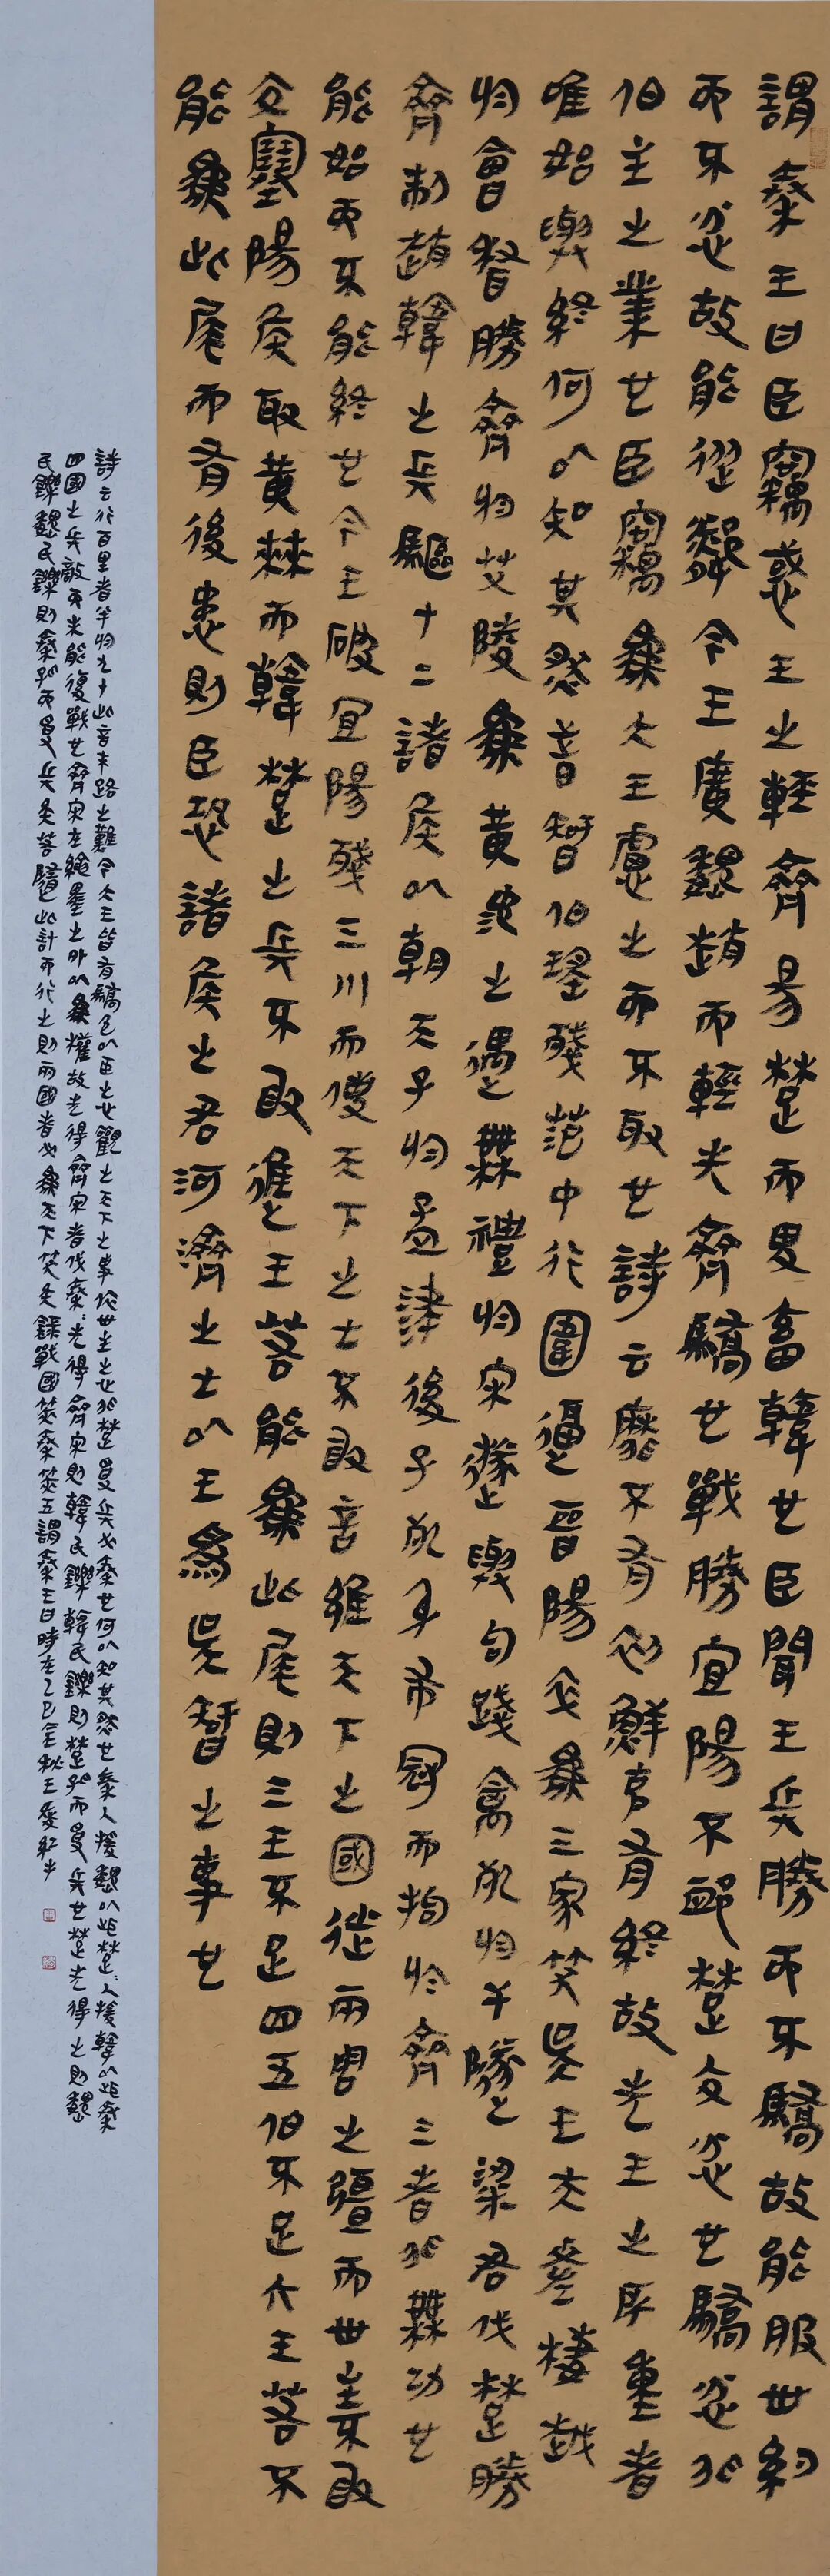 謂秦王曰臣竊惑王之輕齊易楚而卑畜韓也臣聞王兵勝而不驕故能服世約
而不忿故能從鄰今王廣魏趙而輕失齊驕也戰勝宜陽不卹楚交忿也驕忿非
伯主之業也臣竊為大王慮之而不取也詩云靡不有初鮮克有終故先王之所重者
唯始與終何以知其然昔智伯瑤殘范中行圍逼晉陽卒為三家笑吳王夫差棲越
於會稽勝齊於艾陵為黃池之遇無禮於宋遂與句踐禽死於干隧梁君伐楚勝
齊制趙韓之兵驅十二諸侯以朝天子於孟津後子死身布冠而拘於齊三者非無功也
能始而不能終也今王破宜陽殘三川而使天下之士不敢言雍天下之國徙兩周之疆而世主不敢
交塞陽侯取黃棘而韓楚之兵不敢進王若能為此尾則三王不足四五伯不足六王若不
能為此尾而有後患則臣恐諸侯之君河濟之士以王為吳智之事也
詩云行百里者半於九十此言末路之難今大王皆有驕色以臣之心觀之天下之事依世主之心非楚受兵必秦也何以知其然也秦人援魏以拒楚楚人援韓以拒秦
四國之兵敵而未能復戰也齊宋在繩墨之外以為權故先得齊宋者伐秦秦先得齊宋則韓氏鑠韓氏鑠則楚孤而受兵也楚先得之則魏
氏鑠魏氏鑠則秦孤而受兵矣若隨此計而行之則兩國者必為天下笑矣錄戰國策秦策五謂秦王曰時在乙巳金秋王愛紅書